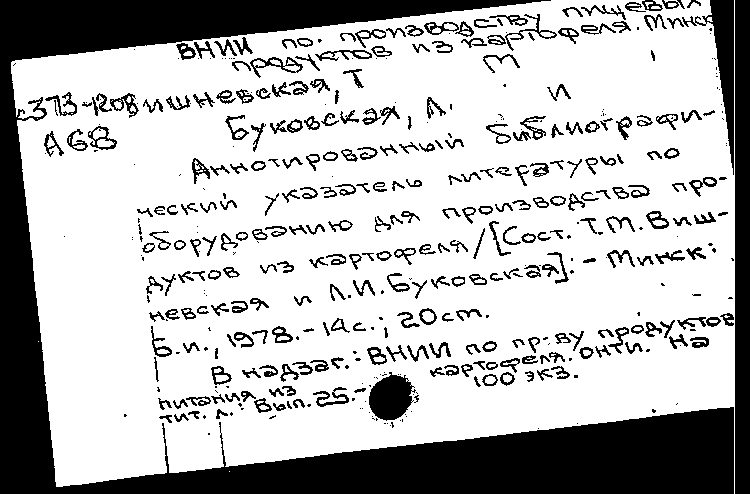 ВНИИ по. производству пищевых
продуктов из картофеля. Минск
с373-1208 Вишневская, Т М
А68 Буковская, Л. И
Аннотированный библиографи-
ческий указатель литературы по
оборудованию для производства про-
дуктов из картофеля/[Сост. Т.М. Виш-
невская и Л.И. Буковская]. - Минск:
Б.и., 1978. - 14 с.; 20 cm.
В надзаг.: ВНИИ по пр-ву продуктов
питания из картофеля. ОНТИ. На
тит. л.: Вып. 25. - 100 экз.